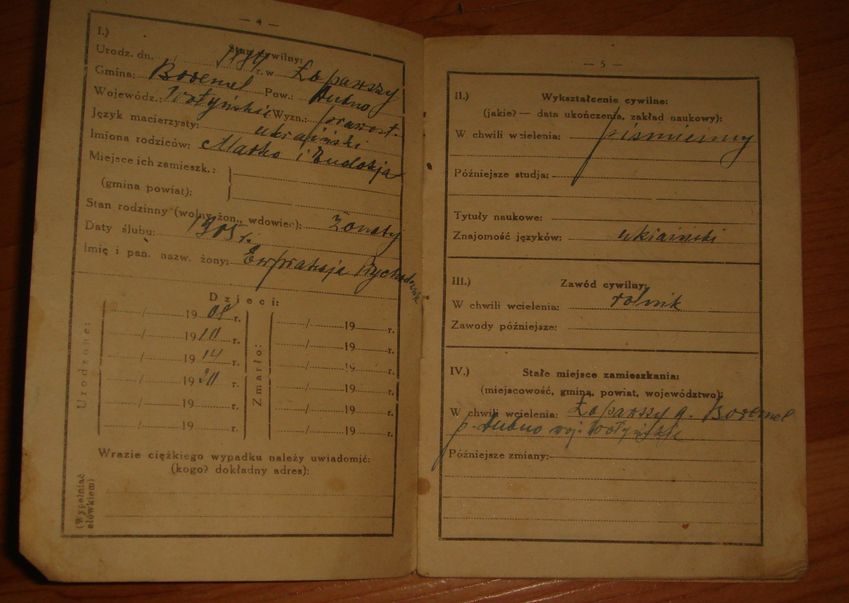 — 4 —
I.) Stan cywilny:
Urodz. dn. r. w Łopawszy
Gmina: Boremel Pow.: Dubno
Wojewódz.: Wołyńskie Wyzn.: prawosł.
Język macierzysty: ukraiński
Imiona rodziców: Marko i Eudokja
Miejsce ich zamieszk.:
(gmina powiat):
Stan rodzinny (wolny, żon., wdowiec): żonaty
Daty ślubu: 1905 r.
Imię i pan. nazw. żony:
Dzieci:
Urodzone:
Zmarło:
/ 19 08 r. / 19 r.
/ 19 10 r. / 19 r.
/ 19 14 r. / 19 r.
/ 19 r. / 19 r.
/ 19 r. / 19 r.
/ 19 r. / 19 r.
Wrazie ciężkiego wypadku należy uwiadomić:
(kogo? dokładny adres):
(Wypełniać ołówkiem)
— 5 —
II.) Wykształcenie cywilne:
(jakie? — data ukończenia, zakład naukowy):
W chwili wcielenia: piśmienny
Późniejsze studja:
Tytuły naukowe:
Znajomość języków: ukraiński
III.) Zawód cywilny:
W chwili wcielenia: rolnik
Zawody późniejsze:
IV.) Stałe miejsce zamieszkania:
(miejscowość, gmina, powiat, województwo):
W chwili wcielenia: Łopawszy g. Boremel
p. Dubno woj. Wołyńskie
Późniejsze zmiany: